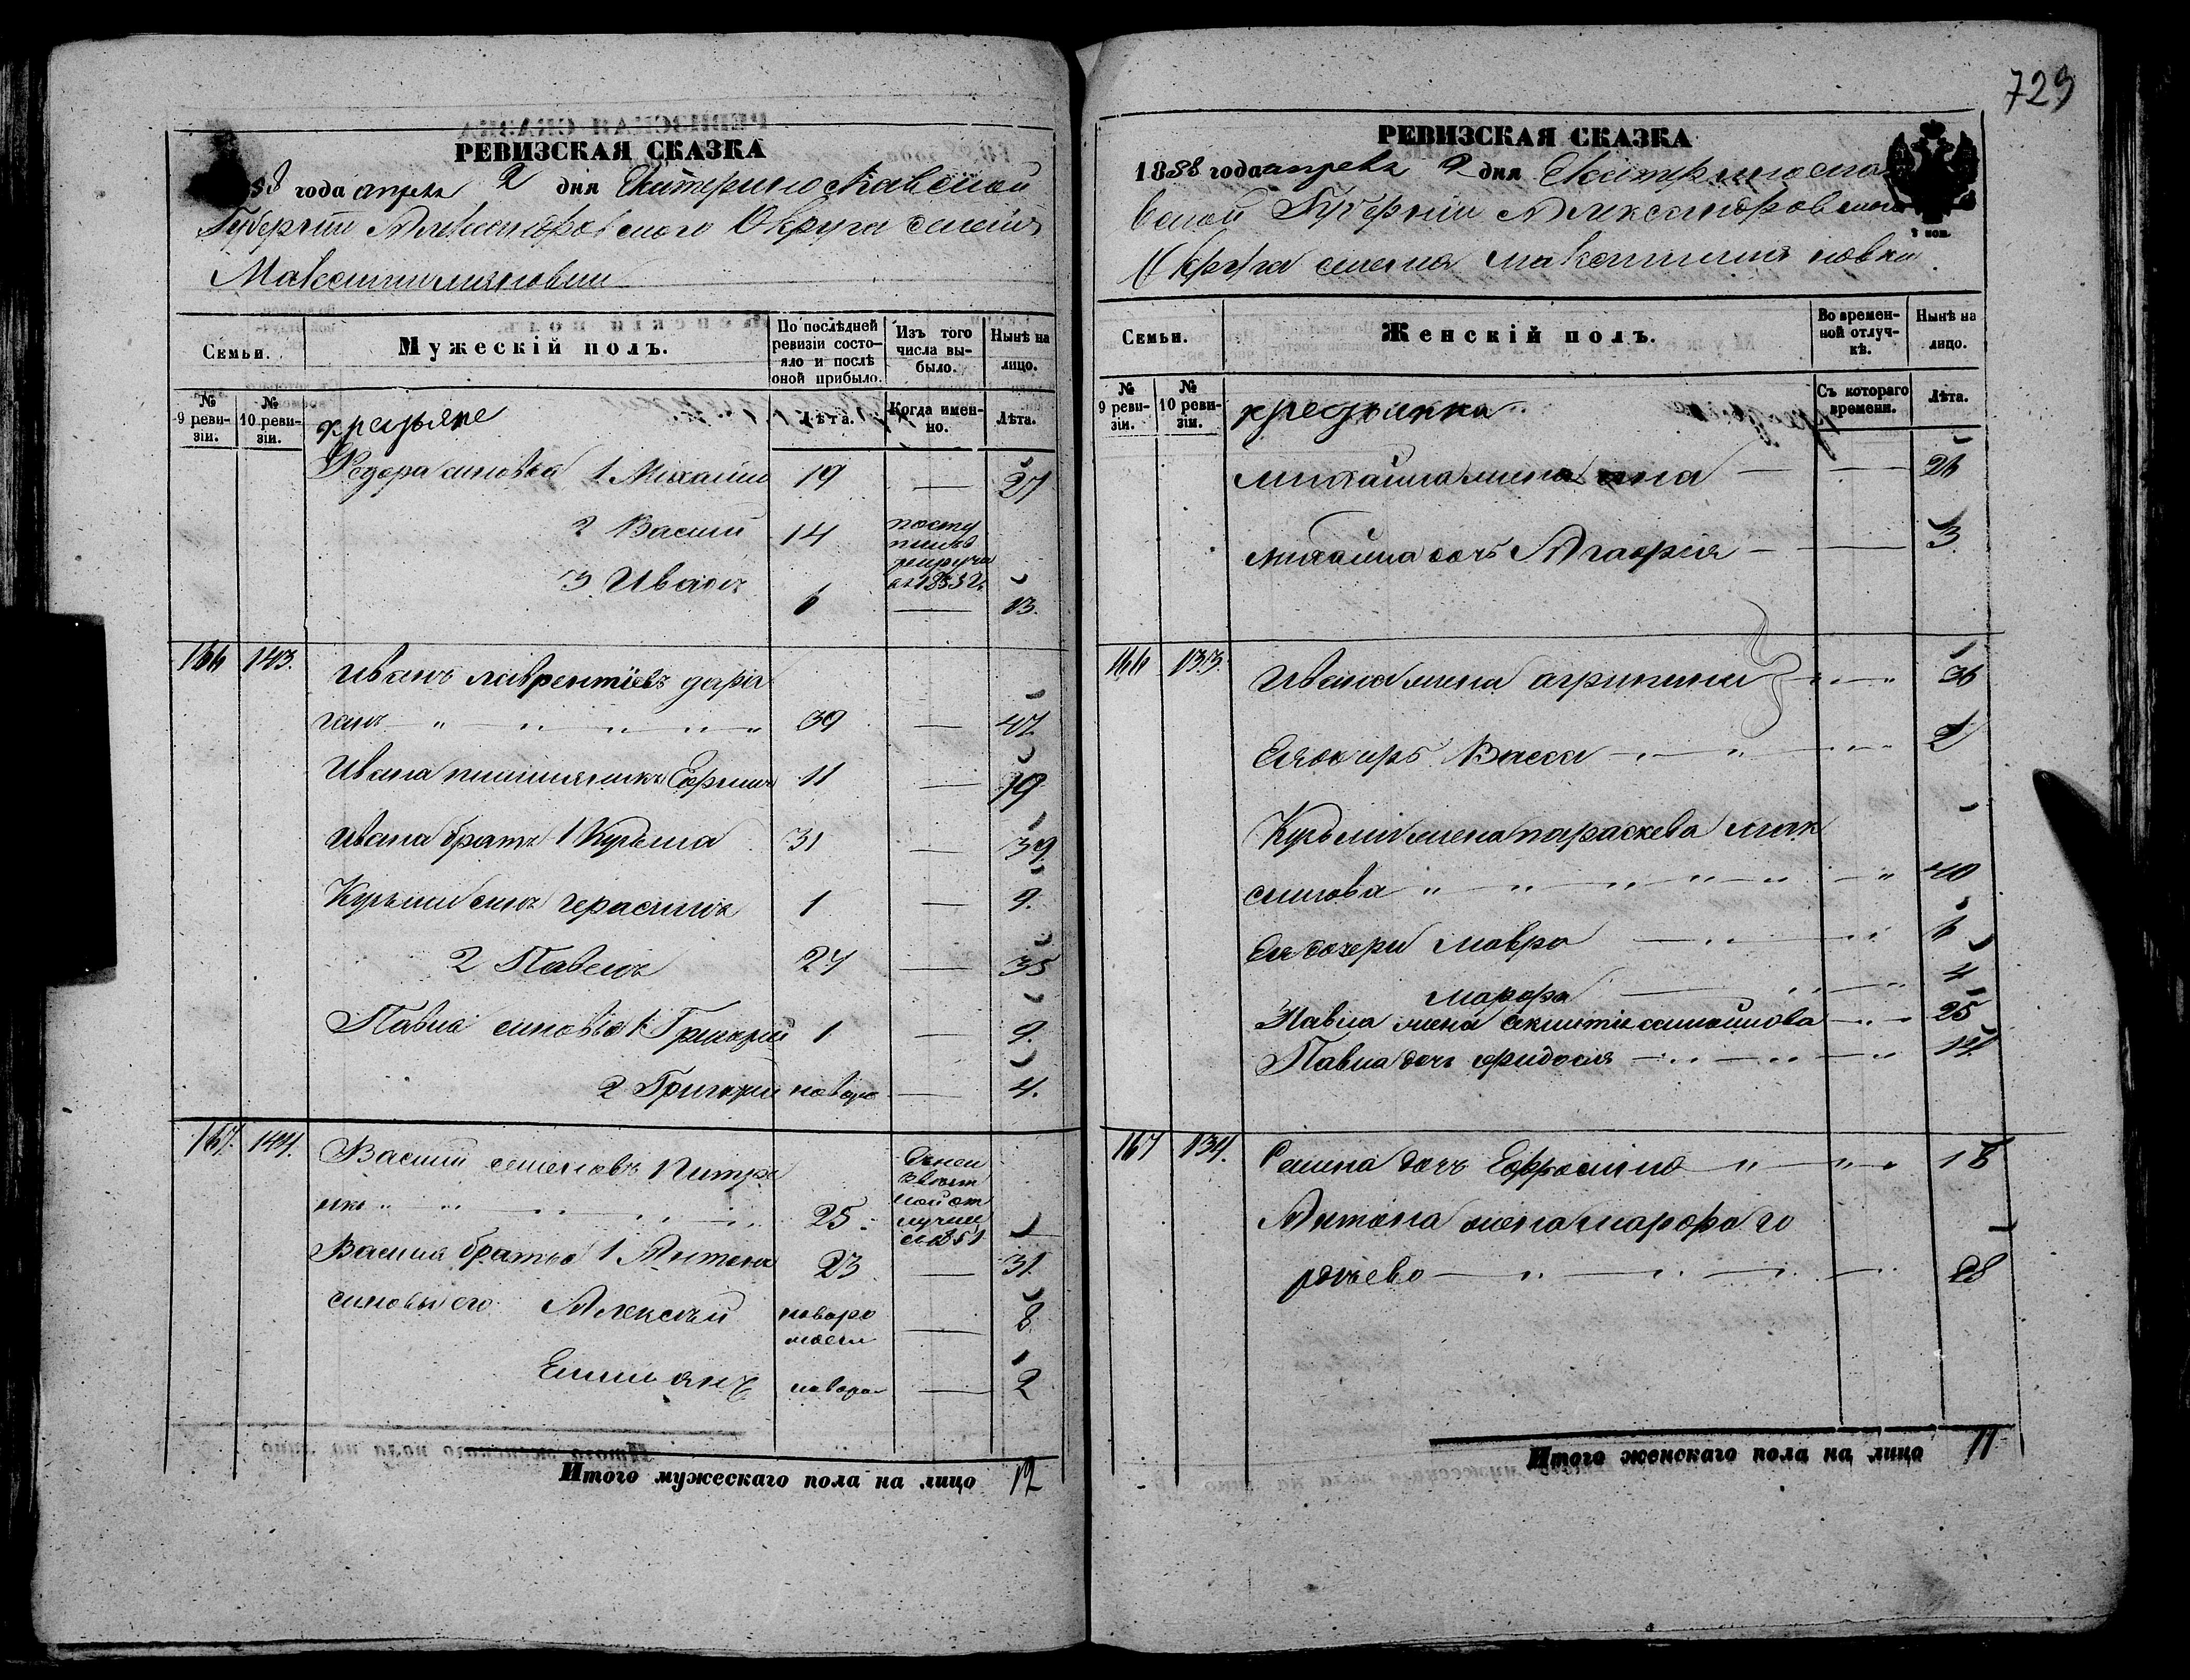 729
РЕВИЗСКАЯ СКАЗКА
58 года апреля 2 дня Екатеринославской
Губернии Александровского Округа селения
Максимилияновки
Семьи.
Мужескій полъ.
По послѣдней ревизіи состо-
яло и послѣ
оной прибыло.
Изъ того
числа вы-
было.
Нынѣ на
лицо.
№
9 реви-
зіи.
№
10 реви-
зіи.
крестьяне
Лѣта.
Когда имен-
но.
Лѣта.
Федора синовья 1 Михайло 19 — 27
2 Васили 14 посту
пилъ в
рекруты
3 Иванъ 6 — 13.
166 143. Иванъ лаврентіевъ
ганъ " " " " " 39 — 47.
Ивана племянникъ Ефримъ 11 — 19
Ивана братъ 1 Кузьма 31 — 39.
Кузьми синъ герасимъ 1 — 9.
2 Павелъ 27 — 35
Павла синовья 1 Григорий 1 — 9.
2 Григорий новоро — 4.
167. 144. Васили семеновъ Питре
нко " " " " " 25
Василя братья 1 Антонъ 23 — 31.
синовьи его Алексѣй новоро
жден — 8
Емилианъ новоро — 2
Итого мужескаго пола на лицо 12
РЕВИЗСКАЯ СКАЗКА
1858 года апреля 2 дня Екатериносла
вской Губернии Александровского
Округа селения максимилияновки
Семьи.
Женскій полъ.
Во времен-
ной отлуч-
кѣ.
Нынѣ на
лицо.
№
9 реви-
зіи.
№
10 реви-
зіи.
крестьянки
Съ котораго
времени.
Лѣта.
Михайла жена — — 26
Михайла дочь Агафия — — 3
166 133. Ивана жена агрипина " " 36
Ея дочерь Васса — " — " 2
Кузьми жена параскева мак
симова " " " " " " 40
Ея дочери Мавра — " — " 6
Марфа — " — " 4
Павла жена 25
Павла дочь фидосия — " — " —
167 134. Семена дочь Ефросина — " — " 18
Антона жена марфа го
28
Итого женскаго пола на лицо 11